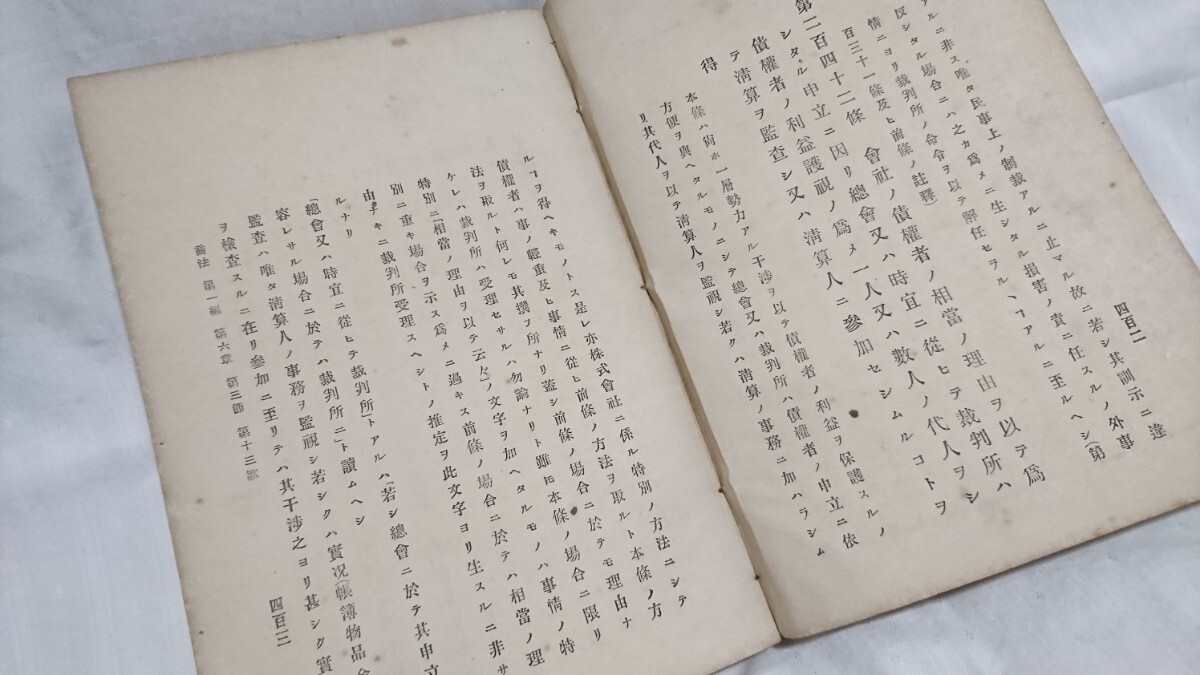 四百二
アルニ非ス唯タ民事上ノ制裁アルニ止マル故ニ若シ其訓示ニ違
反シタル場合ニハ之カ爲メニ生シタル損害ノ責ニ任スルノ外事
情ニヨリ裁判所ノ命令ヲ以テ解任セラルヽヿアルニ至ルヘシ(第
百三十一條及ヒ前條ノ註釋)
第二百四十二條 會社ノ債權者ノ相當ノ理由ヲ以テ爲
シタル申立ニ因リ總會又ハ時宜ニ從ヒテ裁判所ハ
債權者ノ利益護視ノ爲メ一人又ハ數人ノ代人ヲシ
テ淸算ヲ監查シ又ハ淸算人ニ參加セシムルコトヲ
得
本條ハ尙ホ一層勢力アル干涉ヲ以テ債權者ノ利益ヲ保護スルノ
方便ヲ與ヘタルモノニシテ總會又ハ裁判所ハ債權者ノ申立ニ依
リ其代人ヲ以テ淸算人ヲ監視シ若クハ淸算ノ事務ニ加ハラシム
ルヿヲ得ヘキモノトス是レ亦株式會社ニ係ル特別ノ方法ニシテ
債權者ハ事ノ輕重及ヒ事情ニ從ヒ前條ノ方法ヲ取ルト本條ノ方
法ヲ取ルト何レモ其撰フ所ナリ蓋シ前條ノ場合ニ於テモ理由ナ
ケレハ裁判所ハ受理セサルハ勿論ナリト雖ヒ本條ノ場合ニ限リ
特別ニ「相當ノ理由ヲ以テ云々」ノ文字ヲ加ヘタルモノハ事情ノ特
別ニ重キ場合ヲ示ス爲メニ過キス前條ノ場合ニ於テハ相當ノ理
由ナキニ裁判所受理スヘシトノ推定ヲ此文字ヨリ生スルニ非サ
ルナリ
「總會又ハ時宜ニ從ヒテ裁判所」トアルハ「若シ總會ニ於テ其申立
容レサル場合ニ於テハ裁判所ニ」ト讀ムヘシ
監查ハ唯タ淸算人ノ事務ヲ監視シ若シクハ實况(帳簿物品
ヲ檢查スルニ在リ參加ニ至リテハ其干涉之ヨリ甚シク實
商法 第一編 第六章 第三節 第十三欵
四百三